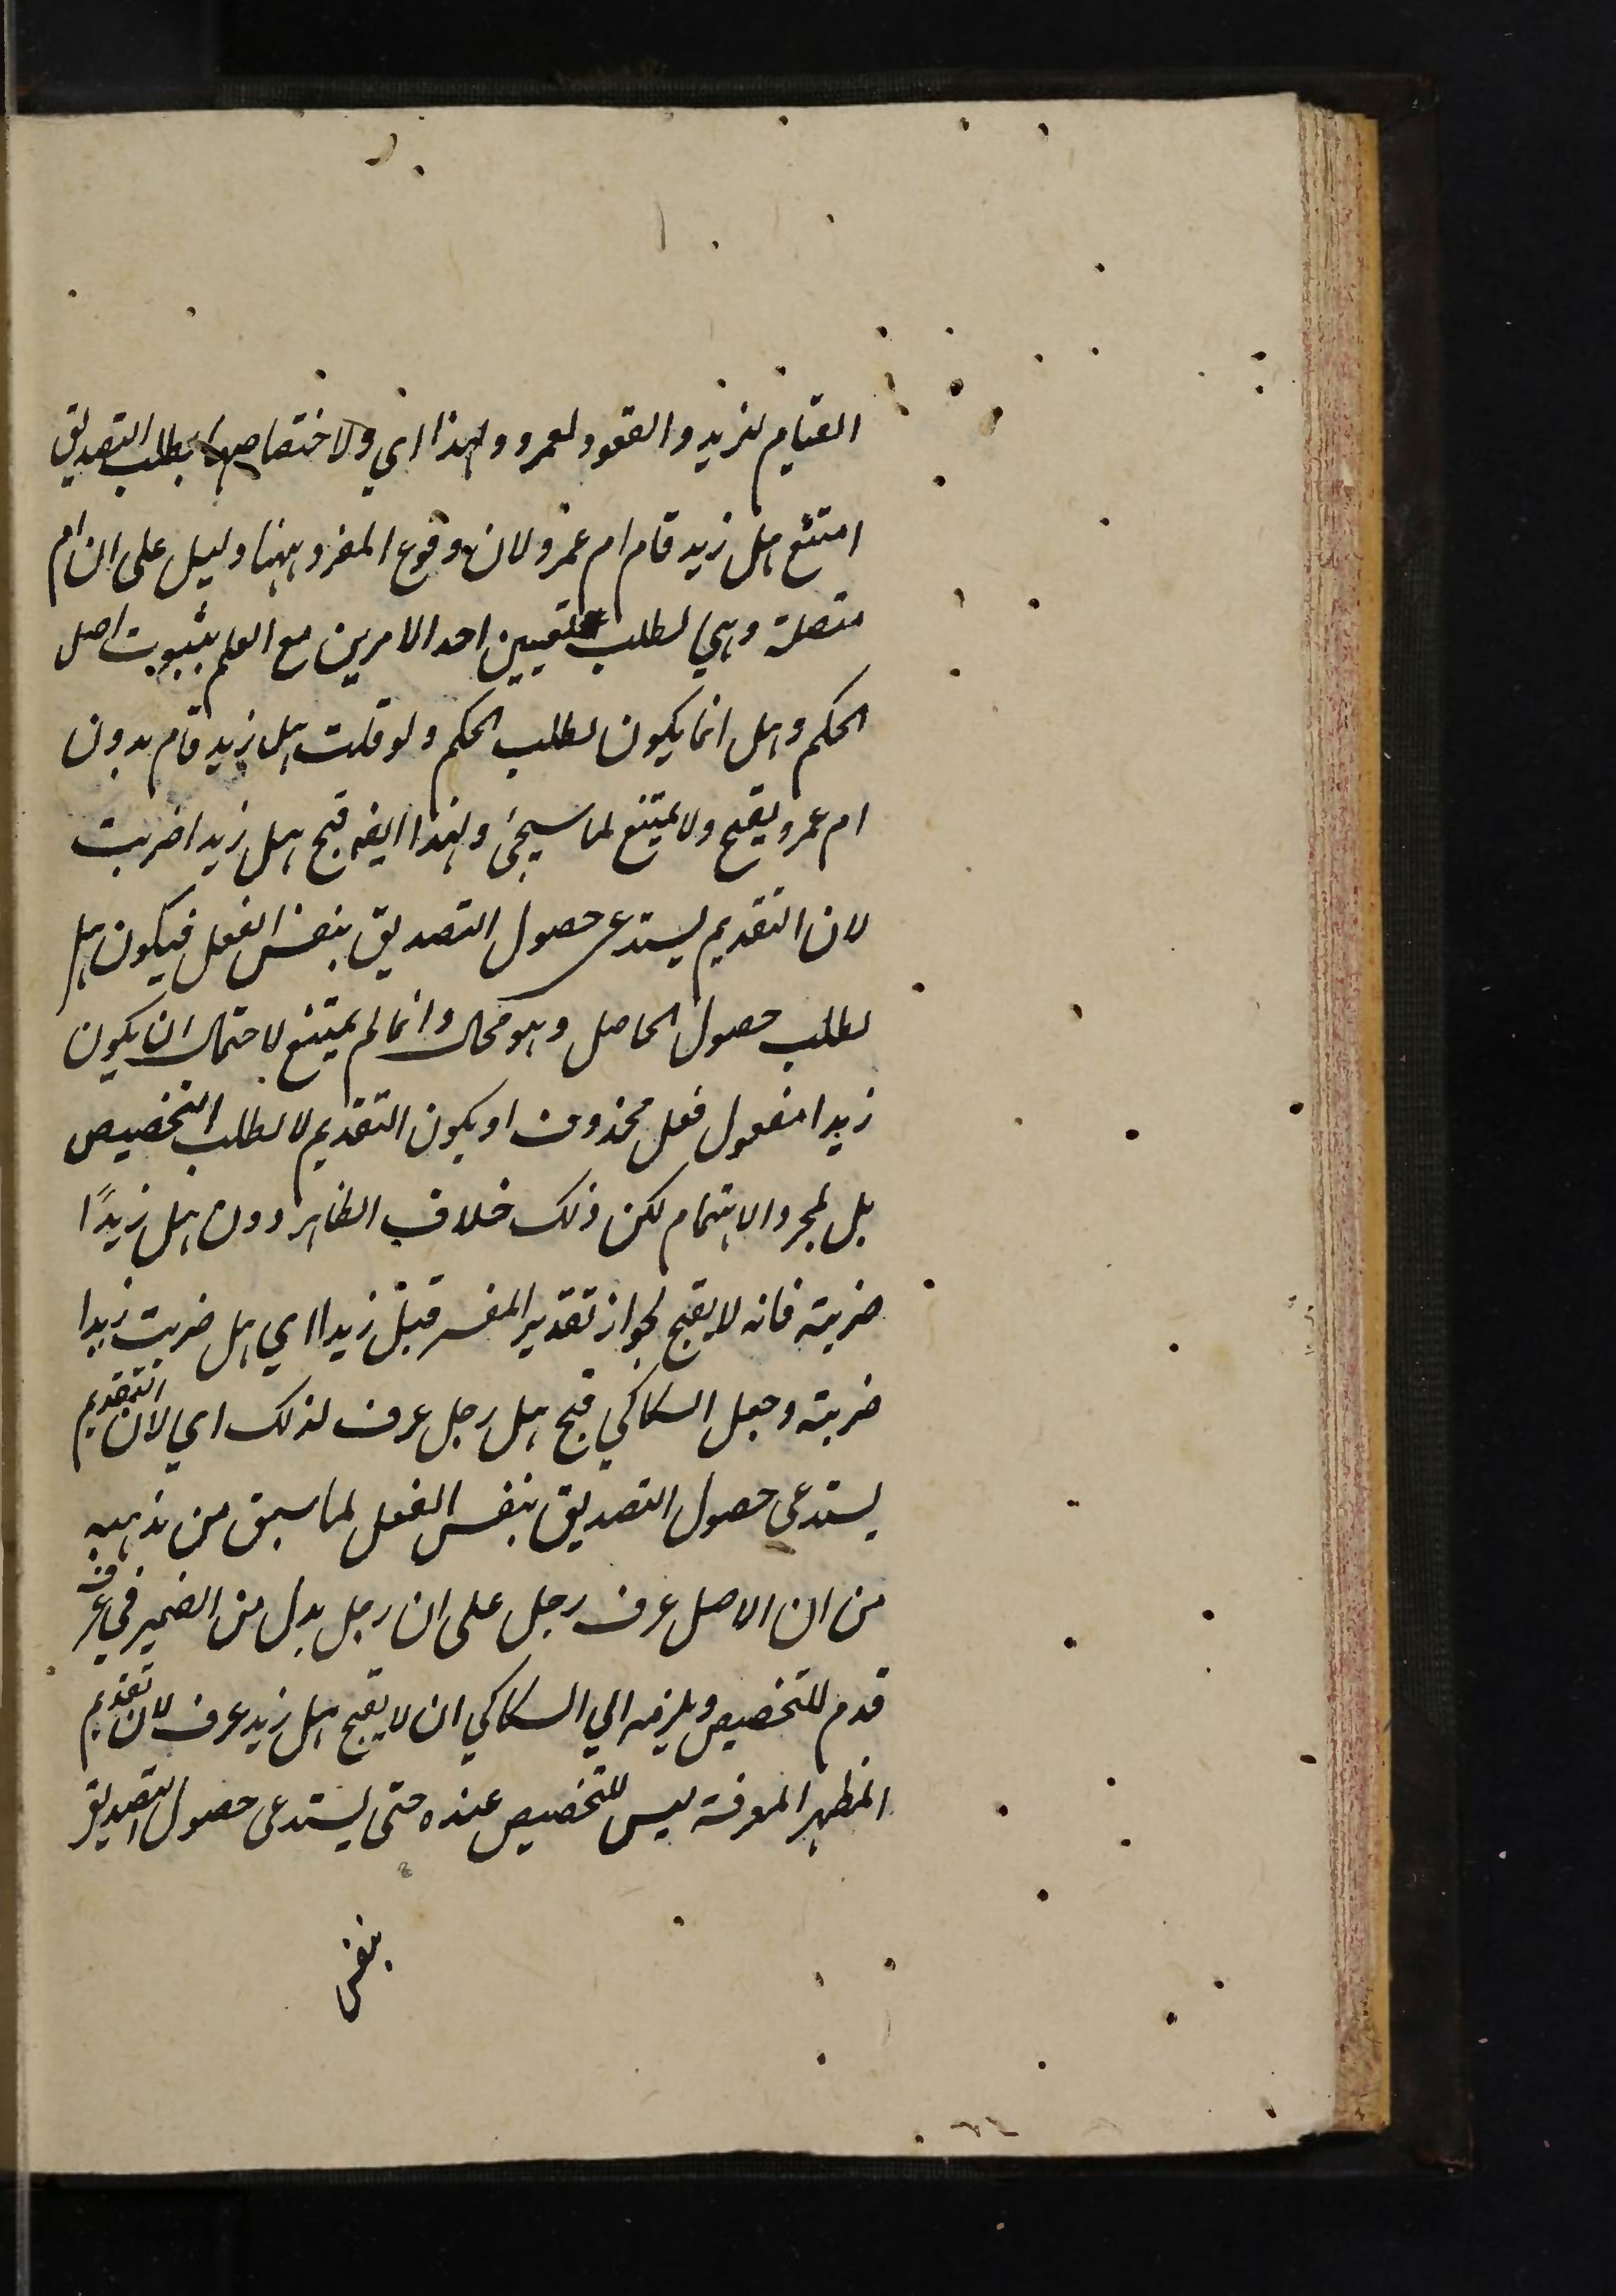 القيام لزيد والقعود لعمرو ولهذا اي ولاختصاصها بطلب التصديق
امتنع هل زيد قام ام عمرو لان وقوع المفرد ههنا دليل على ان ام
متصلة وهي لطلب تعيين احد الامرين مع العلم بثبوت اصل
الحكم وهل انما يكون لطلب الحكم ولو قلت هل زيد قام بدون
ام عمرو يقبح ولا يمتنع لما سيجئ ولهذا ايضا قبح هل زيدا ضربت
لان التقديم يستدعى حصول التصديق بنفس الفعل فيكون هل
لطلب حصول الحاصل وهو محال وانما لم يمتنع لاحتمال ان يكون
زيدا مفعول فعل محذوف او يكون التقديم لا لطلب التخصيص
بل لمجرد الاهتمام لكن ذلك خلاف الظاهر دون هل زيدًا
ضربته فانه لا يقبح لجواز تقدير المفسر قبل زيدا اي هل ضربت زيدا
ضربته وجعل السكاكي قبح هل رجل عرف لذلك اي لان التقديم
يستدعى حصول التصديق بنفس الفعل لما سبق من مذهبه
من ان الاصل عرف رجل على ان رجل بدل من الضمير في عرف
قدم للتخصيص ويلزمه اي السكاكي ان لا يقبح هل زيد عرف لان تقديم
المظهر المعرفة ليس للتخصيص عنده حتى يستدعى حصول التصديق
بنفس